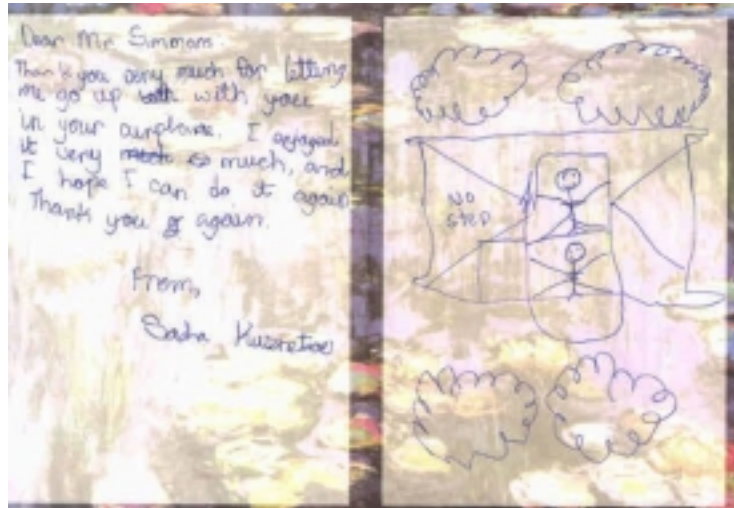 Dear Mr. Simmons.
Thank you very much for letting
me go up with you
in your airplane. I enjoyed
it very much so much, and
I hope I can do it again
Thank you again.
From,
Sasha
NO
STEP